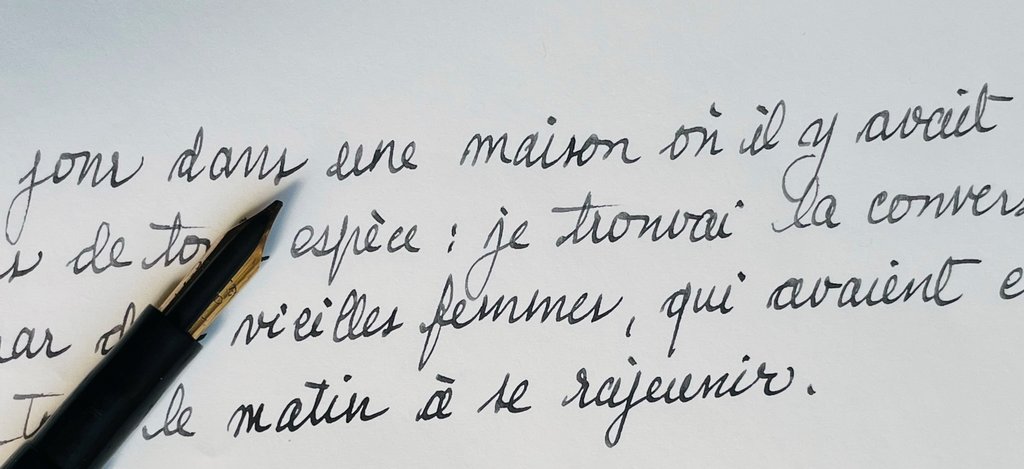 jour dans une maison où il y avait
de to espèce : je trouvai la convers
ar d vieilles femmes, qui avaient e
le matin à se rajeunir.